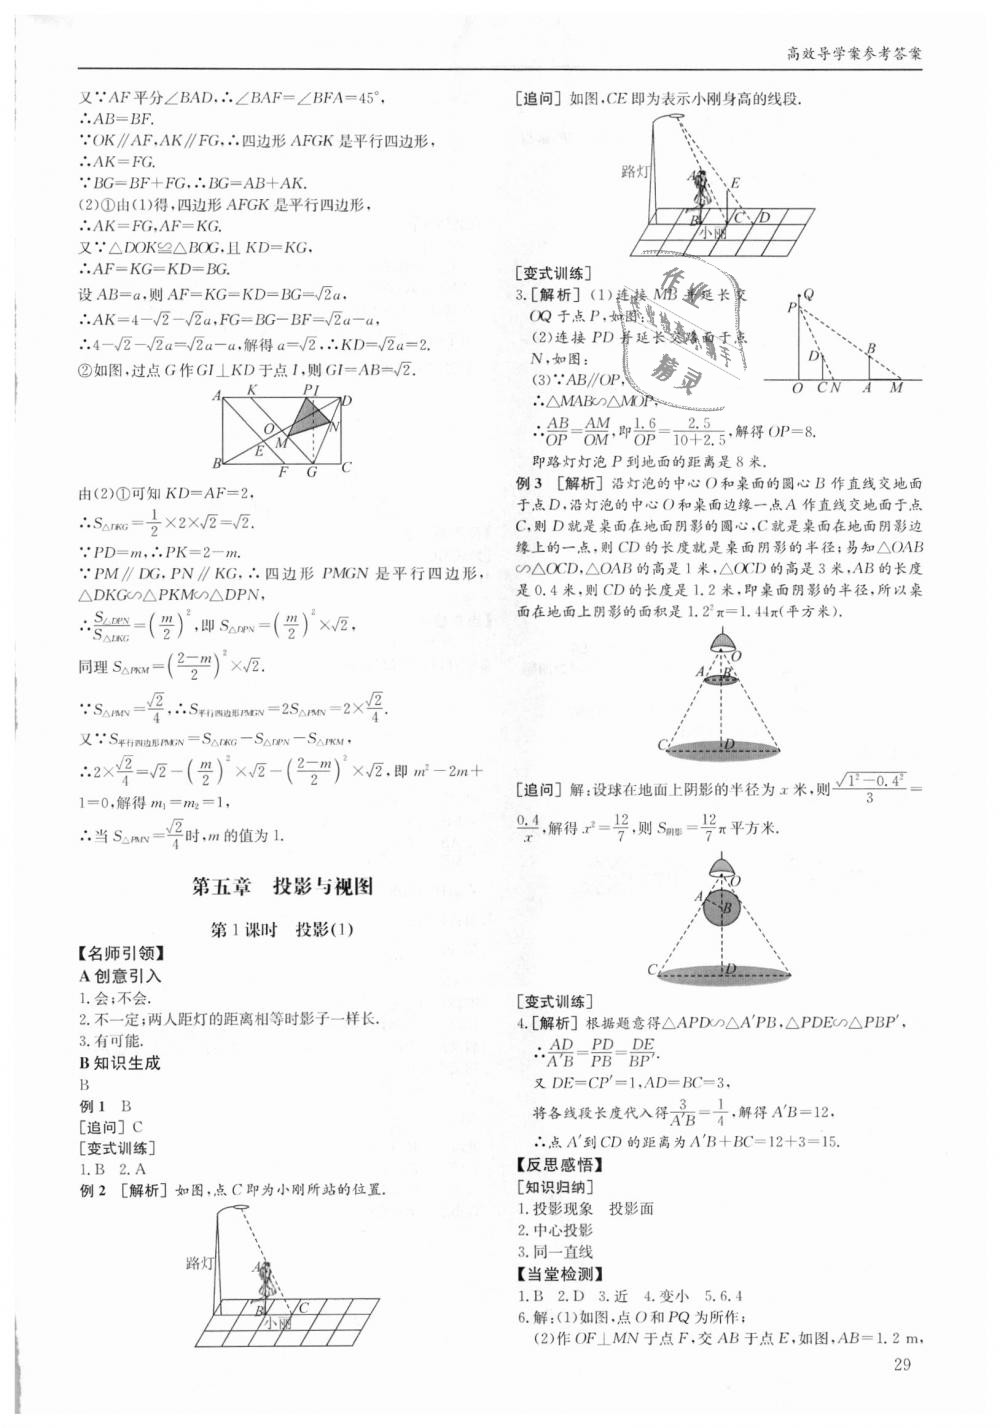 高效导学案参考答案
又∵AF平分∠BAD,∴∠BAF=∠BFA=45°,
∴AB=BF.
∵OK∥AF,AK∥FG,∴四边形AFGK是平行四边形,
∴AK=FG.
∵BG=BF+FG,∴BG=AB+AK.
(2)①由(1)得,四边形AFGK是平行四边形,
∴AK=FG,AF=KG.
又∵△DOK≌△BOG,且KD=KG,
∴AF=KG=KD=BG.
设AB=a,则AF=KG=KD=BG=√2a,
∴AK=4-√2-√2a,FG=BG-BF=√2a-a,
∴4-√2-√2a=√2a-a,解得a=√2,∴KD=√2a=2.
②如图,过点G作GI⊥KD于点I,则GI=AB=√2.
A K P I D
O M N
E
B F G C
由(2)①可知KD=AF=2,
∴S△DKG=1/2×2×√2=√2.
∵PD=m,∴PK=2-m.
∵PM∥DG,PN∥KG,∴四边形PMGN是平行四边形,
△DKG∽△PKM∽△DPN,
∴S△DPN/S△DKG=(m/2)²,即S△DPN=(m/2)²×√2,
同理S△PKM=((2-m)/2)²×√2.
∵S△PMN=√2/4,∴S平行四边形PMGN=2S△PMN=2×√2/4.
又∵S平行四边形PMGN=S△DKG-S△DPN-S△PKM,
∴2×√2/4=√2-(m/2)²×√2-((2-m)/2)²×√2,即m²-2m+
1=0,解得m₁=m₂=1,
∴当S△PMN=√2/4时,m的值为1.
第五章 投影与视图
第1课时 投影(1)
【名师引领】
A创意引入
1.会;不会.
2.不一定;两人距灯的距离相等时影子一样长.
3.有可能.
B知识生成
B
例1 B
[追问] C
[变式训练]
1.B 2.A
例2 [解析] 如图,点C即为小刚所站的位置.
路灯
A
B C
小刚
[追问] 如图,CE即为表示小刚身高的线段.
路灯
A E
B C D
小刚
[变式训练]
3.[解析] (1)连接MB并延长交
OQ于点P,如图:
(2)连接PD并延长交路面于点
N,如图:
(3)∵AB∥OP,
∴△MAB∽△MOP,
∴AB/OP=AM/OM,即1.6/OP=2.5/(10+2.5),解得OP=8.
即路灯灯泡P到地面的距离是8米.
Q
P
D B
O C N A M
作业
精灵
例3 [解析] 沿灯泡的中心O和桌面的圆心B作直线交地面
于点D,沿灯泡的中心O和桌面边缘一点A作直线交地面于点
C,则D就是桌面在地面阴影的圆心,C就是桌面在地面阴影边
缘上的一点,则CD的长度就是桌面阴影的半径;易知△OAB
∽△OCD,△OAB的高是1米,△OCD的高是3米,AB的长度
是0.4米,则CD的长度是1.2米,即桌面阴影的半径,所以桌
面在地面上阴影的面积是1.2²π=1.44π(平方米).
O
A B
C D
[追问] 解:设球在地面上阴影的半径为x米,则√(1²-0.4²)/3=
0.4/x,解得x²=12/7,则S阴影=12/7π平方米.
O
A B
C D
[变式训练]
4.[解析] 根据题意得△APD∽△A′PB,△PDE∽△PBP′,
∴AD/A′B=PD/PB=DE/BP′.
又DE=CP′=1,AD=BC=3,
将各线段长度代入得3/A′B=1/4,解得A′B=12,
∴点A′到CD的距离为A′B+BC=12+3=15.
【反思感悟】
[知识归纳]
1.投影现象 投影面
2.中心投影
3.同一直线
【当堂检测】
1.B 2.D 3.近 4.变小 5.6.4
6.解:(1)如图,点O和PQ为所作;
(2)作OF⊥MN于点F,交AB于点E,如图,AB=1.2 m,
29